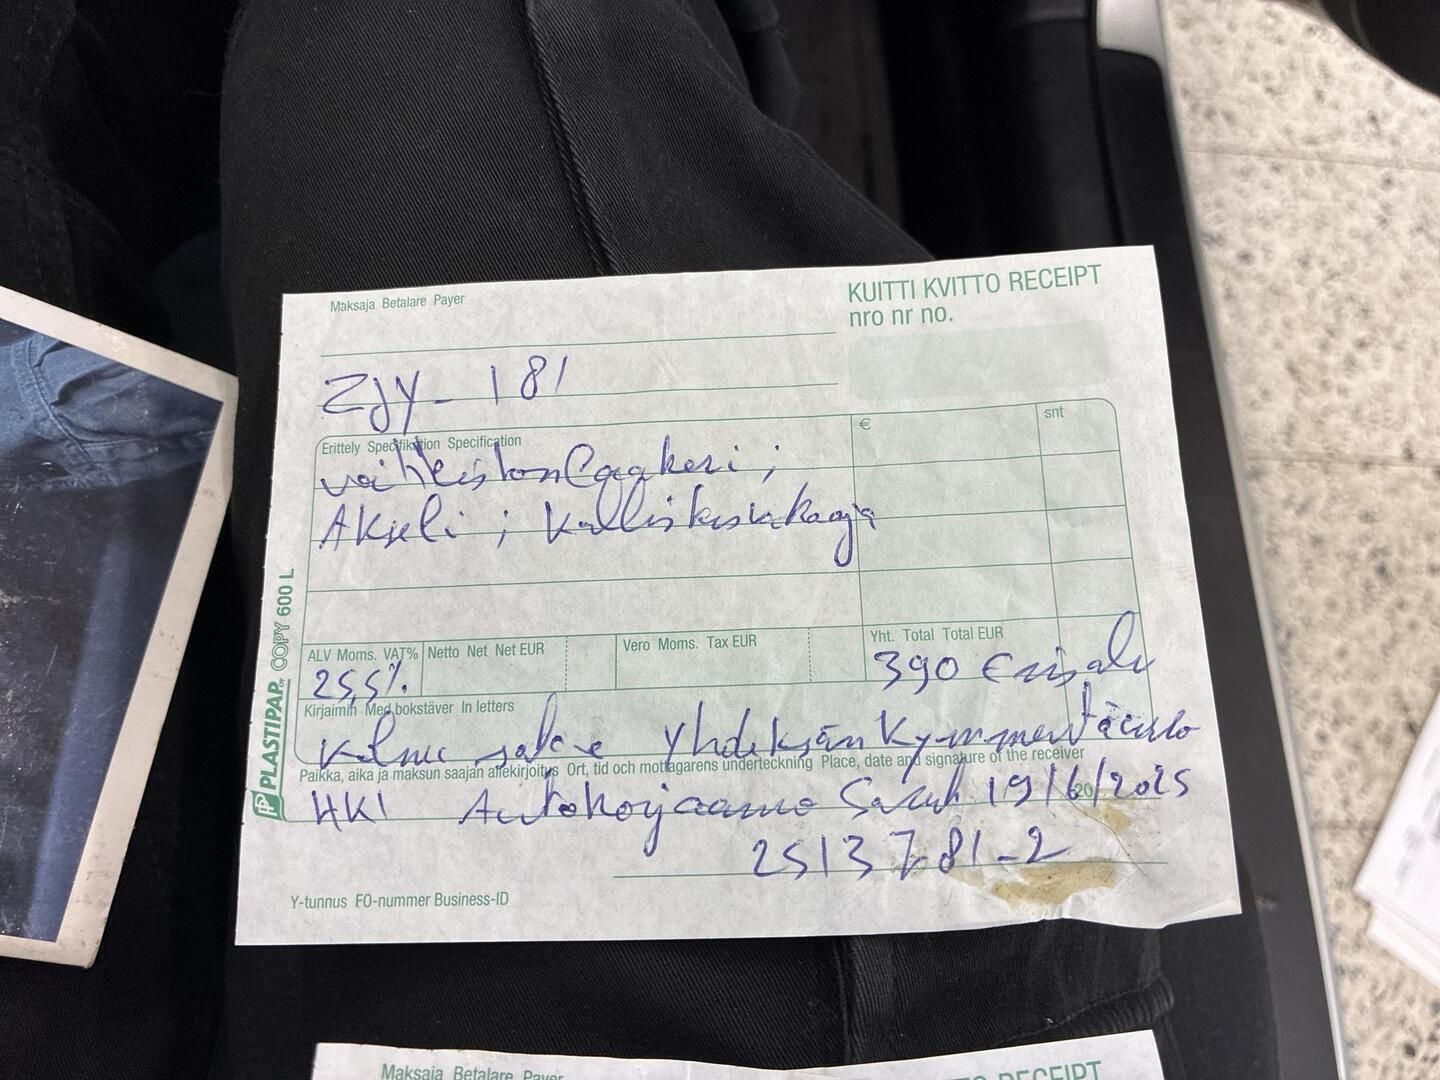 Maksaja Betalare Payer
KUITTI KVITTO RECEIPT
nro nr no.
ZJY-181
€
snt
Erittely Specifikation Specification
Akseli ;
ALV Moms. VAT%
Netto Net Net EUR
Vero Moms. Tax EUR
Yht. Total Total EUR
25,5%.
390 €
Kirjaimin Med bokstäver In letters
Kolme yhdeksänkymmentä
Paikka, aika ja maksun saajan allekirjoitus Ort, tid och mottagarens underteckning Place, date and signature of the receiver
HKI Autokorjaamo 19/6/2025
20
2513781-2
Y-tunnus FO-nummer Business-ID
PP PLASTIPAP COPY 600 L
Maksaja Betalare Payer
RECEIPT